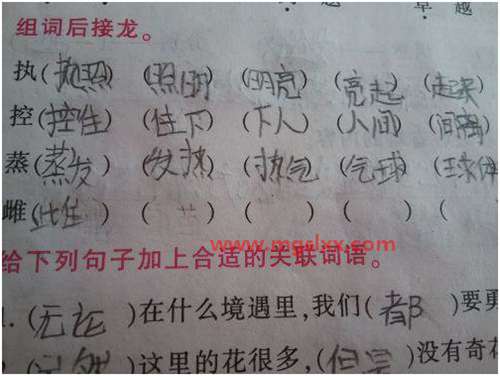 卓越
组词后接龙。
执(执照) (照明) (明亮) (亮起) (起来)
控(控住) (住下) (下人) (人间) (间隔)
蒸(蒸发) (发热) (热气) (气球) (球体
雌( ) ( ) ( ) ( ) (
www.mgslxx.com
给下列句子加上合适的关联词语。
1.(无论)在什么境遇里,我们(都)要勇
)这里的花很多,(但是)没有奇花